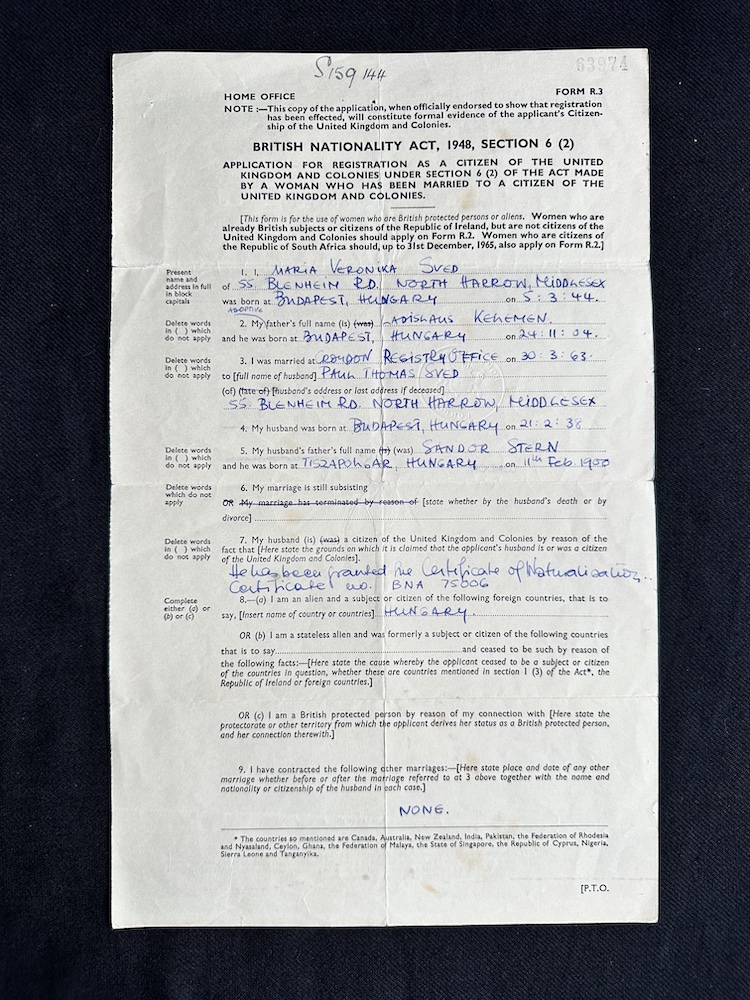 S159 144
63974
HOME OFFICE FORM R.3
NOTE :—This copy of the application, when officially endorsed to show that registration
has been effected, will constitute formal evidence of the applicant's Citizen-
ship of the United Kingdom and Colonies.
BRITISH NATIONALITY ACT, 1948, SECTION 6 (2)
APPLICATION FOR REGISTRATION AS A CITIZEN OF THE UNITED
KINGDOM AND COLONIES UNDER SECTION 6 (2) OF THE ACT MADE
BY A WOMAN WHO HAS BEEN MARRIED TO A CITIZEN OF THE
UNITED KINGDOM AND COLONIES.
[This form is for the use of women who are British protected persons or aliens. Women who are
already British subjects or citizens of the Republic of Ireland, but are not citizens of the
United Kingdom and Colonies should apply on Form R.2. Women who are citizens of
the Republic of South Africa should, up to 31st December, 1965, also apply on Form R.2.]
Present
name and
address in full
in block
capitals
1. I, MARIA VERONIKA SVED
of 55 BLENHEIM RD. NORTH HARROW, MIDDLESEX
was born at BUDAPEST, HUNGARY on 5:3:44.
ADOPTIVE
Delete words
in ( ) which
do not apply
2. My father's full name (is) (was) LADISLAUS KELEMEN.
and he was born at BUDAPEST, HUNGARY on 24:11:04.
Delete words
in ( ) which
do not apply
3. I was married at CROYDON REGISTRY OFFICE on 30:3:63.
to [full name of husband] PAUL THOMAS SVED
(of) (late of) [husband's address or last address if deceased]
55 BLENHEIM RD. NORTH HARROW, MIDDLESEX
4. My husband was born at BUDAPEST, HUNGARY on 21:2:38
Delete words
in ( ) which
do not apply
5. My husband's father's full name (is) (was) SANDOR STERN
and he was born at TISZAPOLGAR, HUNGARY on 11th Feb. 1900
Delete words
which do not
apply
6. My marriage is still subsisting
OR My marriage has terminated by reason of [state whether by the husband's death or by
divorce]
Delete words
in ( ) which
do not apply
7. My husband (is) (was) a citizen of the United Kingdom and Colonies by reason of the
fact that [Here state the grounds on which it is claimed that the applicant's husband is or was a citizen
of the United Kingdom and Colonies].
He has been granted the Certificate of Naturalisation
Certificate no. BNA 75006
Complete
either (a) or
(b) or (c)
8.—(a) I am an alien and a subject or citizen of the following foreign countries, that is to
say, [Insert name of country or countries] HUNGARY.
OR (b) I am a stateless alien and was formerly a subject or citizen of the following countries
that is to say and ceased to be such by reason of
the following facts:—[Here state the cause whereby the applicant ceased to be a subject or citizen
of the countries in question, whether these are countries mentioned in section 1 (3) of the Act*, the
Republic of Ireland or foreign countries.]
OR (c) I am a British protected person by reason of my connection with [Here state the
protectorate or other territory from which the applicant derives her status as a British protected person,
and her connection therewith.]
9. I have contracted the following other marriages:—[Here state place and date of any other
marriage whether before or after the marriage referred to at 3 above together with the name and
nationality or citizenship of the husband in each case.]
NONE.
* The countries so mentioned are Canada, Australia, New Zealand, India, Pakistan, the Federation of Rhodesia
and Nyasaland, Ceylon, Ghana, the Federation of Malaya, the State of Singapore, the Republic of Cyprus, Nigeria,
Sierra Leone and Tanganyika.
[P.T.O.